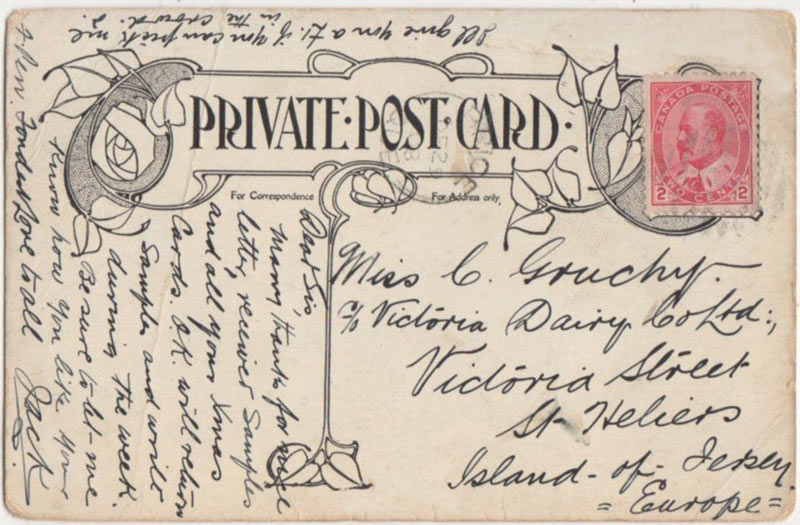 PRIVATE·POST·CARD·
For Correspondence
For Address only,
CANADA POSTAGE
2 TWO CENTS 2
Miss C. Gruchy.
c/o Victoria Dairy Co Ltd:,
Victoria Street
St Heliers
Island-of-Jersey
=Europe=
Dear Sis
Many thanks for
letter, received Samples
and all your Xmas
Cards. O.K. will return
Samples and write
during the week.
Be sure to let me
know how you like your
Pen. Fondest love to all
Jack
Ill give you a £1. if you can pick me
in the crowd. J.